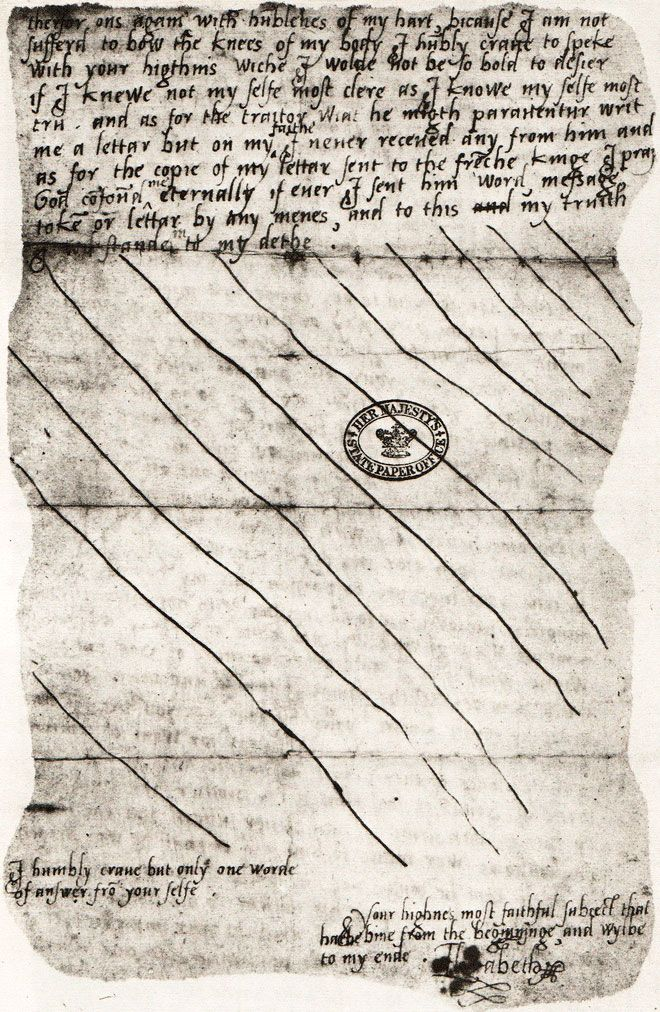 therfor ons again with hūblenes of my hart, bicause I am not
sufferd to bow the knees of my body I hūbly craue to speke
with your higthnis wiche I wolde not be so bold to desier
if I knewe not my selfe most clere as I knowe my selfe most
tru. and as for the traitor Wiat he migth parauentur writ
me a lettar but on my faithe I neuer receued any from him and
as for the copie of my lettar sent to the frēche kinge I pray
God cōfoūd me eternally if euer I sent him word, message,
tokē or lettar by any menes, and to this and my truith
stande in til my dethe.
HER MAJESTY'S STATE PAPER OFFICE
I humbly craue but only one worde
of answer frō your selfe
Your highnes most faithful subiect that
hathe bine from the beginninge, and wylbe
to my ende. Elizabeth